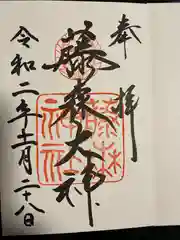 奉拝
藤森大神
令和二年十一月二十八日